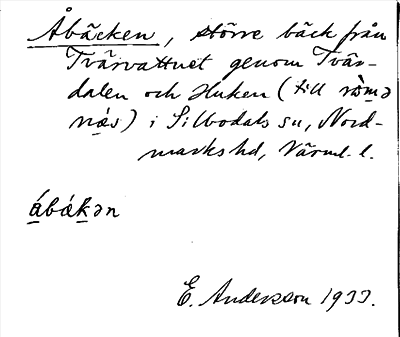 Åbäcken, större bäck från
Tvärvattnet genom Tvär-
dalen och Huken (till rö̀mə
nás) i Silbodals sn, Nord-
marks hd, Värml. l.
ábákən
E. Andersson 1933.